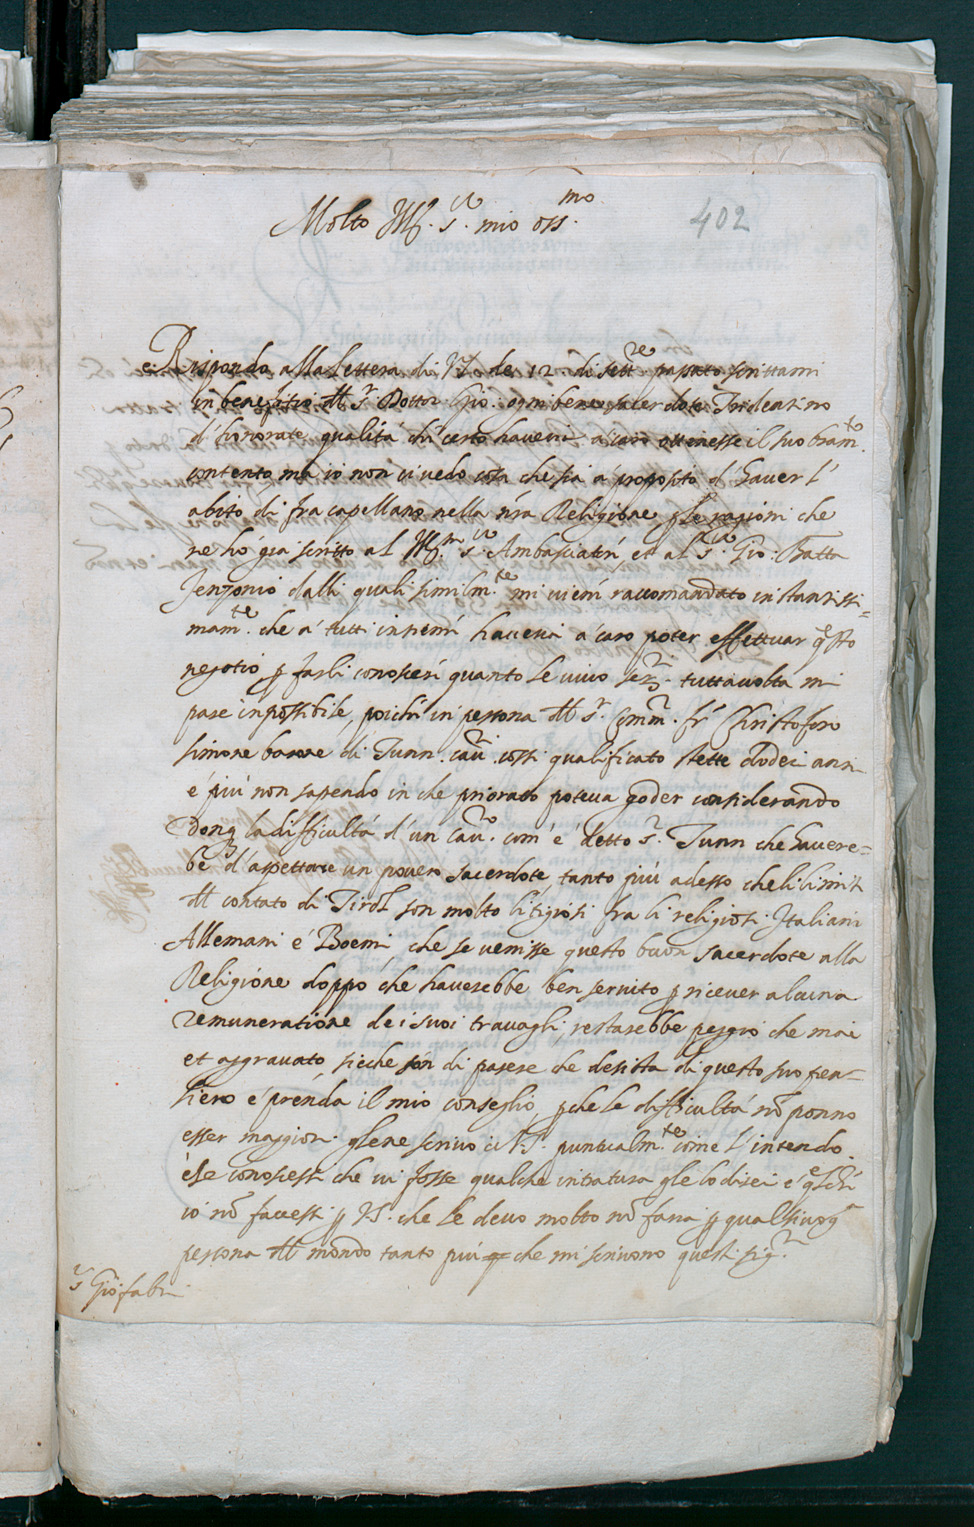 Molto Ill. s.re mio oss.mo
402
Rispondo alla lettera di VS de 12 di sett.re passato scrittami
in benefitio dll s.r Dottor Gio: ogniben sacerdote Tridentino
d'honorate qualità ch' certo haverei à caro ottenesse il suo bram.to
contento, ma io non ci vedo cosa che sia à proposito d'haver l'
abito di fra capellano nella nra Religione p le ragioni che
ne hò già scritto al Ill.m s.r Ambasciatr et al s.r Gio: Batta
dalli quali similm.te mi vien raccomandato instantissi=
mam.te che à tutti insiemi haveria à caro poter effettuar qsto
negotio p farli conoscer quanto le vivo ser.re tuttavolta mi
pare inpossibile, poiche in persona dll s.r Comm.r fr Christoforo
simone barone di Tunn cav.r cosi qualificato stette dodeci anni
é più non sapendo in che priorato poteva goder considerando
donq la difficultà d'un cav.r com' é detto s.r Tunn che havere=
be d'aspettare un povero sacerdote, tanto più adesso che li limiti
dll contato di Tirol son molto litigiosi fra li religiosi Italiani
Allemani é Boemi, che se venisse questo buon sacerdote alla
Religione doppò che haverebbe ben servito p ricever alcuna
remuneratione de i suoi travagli, restarebbe peggio che mai
et aggravato, sicche són di parere che desista di questo suo pen=
siero é prenda il mio conseglio, pche le difficultà nõ ponno
esser maggiori gliene scrivo à VS. puntualm.te come l'intendo.
é se conoscessi che vi fosse qualche intratura gle lo direi e qlchi
io nõ facessi p VS. che le devo molto nõ faria p qualsivogl
persona dll mondo tanto più che mi scrivono questi sig.ri
s.r Gio: fabri